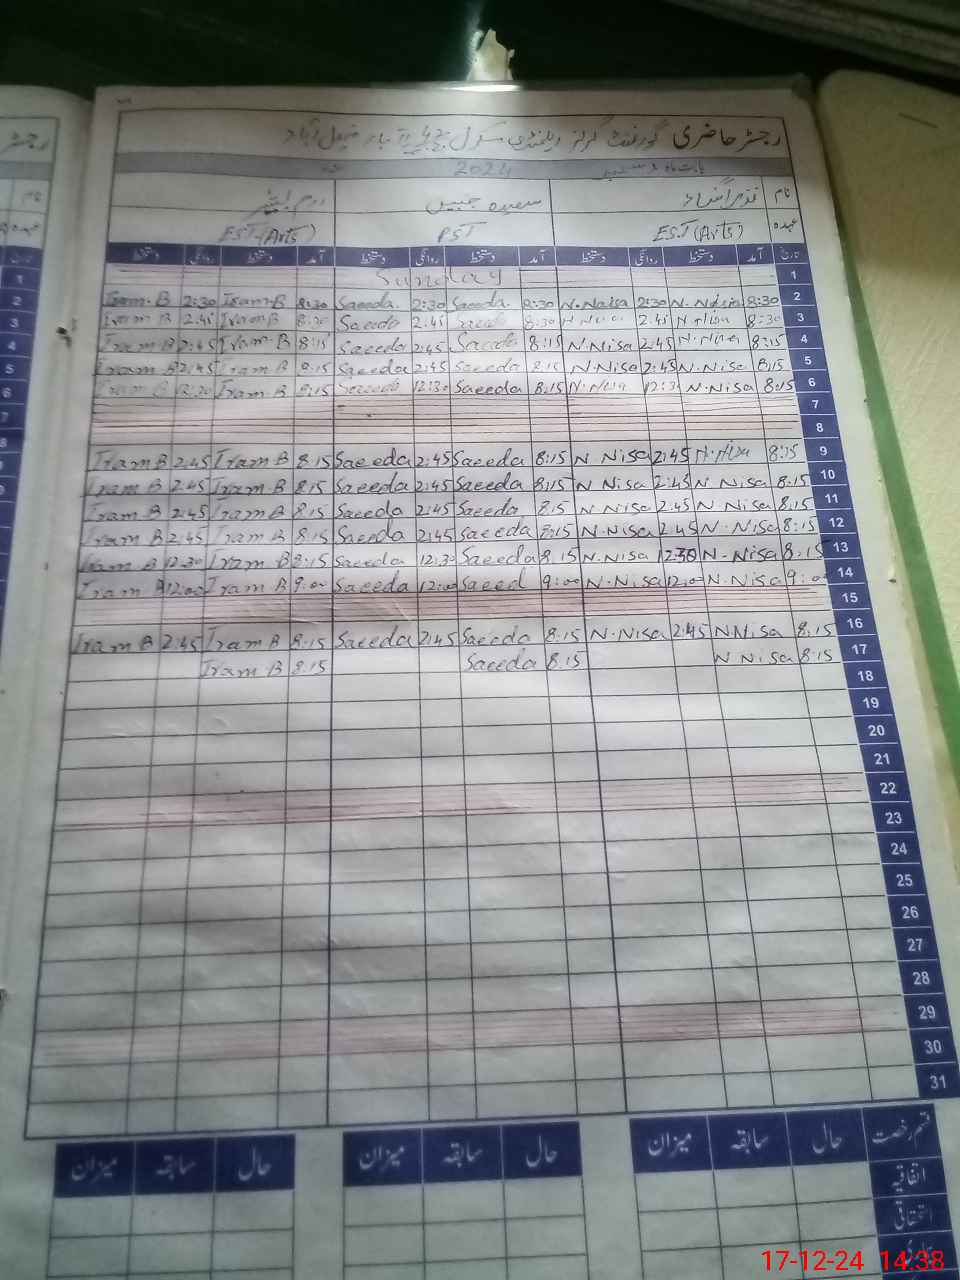 رجسٹر حاضری گورنمنٹ گرلز ایلیمنٹری سکول
بابت ماہ دسمبر 2024
نام
سعیدہ جبیں
ارم
عہدہ EST (Arts) PST EST (Arts)
تاریخ آمد دستخط روانگی دستخط آمد دستخط روانگی دستخط آمد دستخط روانگی دستخط
Sunday 1
Iram.B 2:30 Iram.B 8:30 Saeeda 2:30 Saeeda 8:30 N.Nisa 2:30 N.Nisa 8:30 2
Iram B 2.45 Iram B 8:30 Saeeda 2.45 Saeeda 8:30 N Nisa 2.45 N Nisa 8:30 3
Iram B 2:45 Iram B 8:15 Saeeda 2:45 Saeeda 8:15 N.Nisa 2:45 N.Nisa 8:15 4
Iram B 2:45 Iram B 8:15 Saeeda 2:45 Saeeda 8:15 N.Nisa 2:45 N.Nisa 8:15 5
Iram B 12:30 Iram B 8:15 Saeeda 12:30 Saeeda 8:15 N.Nisa 12:3 N.Nisa 8:15 6
7
8
Iram B 2:45 Iram B 8:15 Saeeda 2:45 Saeeda 8:15 N Nisa 2:45 N.Nisa 8:15 9
Iram B 2.45 Iram B 8:15 Saeeda 2:45 Saeeda 8:15 N Nisa 2:45 N Nisa 8:15 10
Iram B 2:45 Iram B 8:15 Saeeda 2:45 Saeeda 8.15 N Nisa 2:45 N.Nisa 8:15 11
Iram B 2:45 Iram B 8:15 Saeeda 2:45 Saeeda 8:15 N.Nisa 2:45 N.Nisa 8:15 12
Iram B 12:30 Iram B 8:15 Saeeda 12:30 Saeeda 8:15 N.Nisa 12:30 N.Nisa 8:15 13
Iram B 12:00 Iram B 9:00 Saeeda 12:00 Saeed 9:00 N.Nisa 12:00 N.Nisa 9:00 14
15
Iram B 2:45 Iram B 8:15 Saeeda 2:45 Saeeda 8:15 N.Nisa 2:45 N Nisa 8:15 16
Iram B 8:15 Saeeda 8:15 N Nisa 8:15 17
18
19
20
21
22
23
24
25
26
27
28
29
30
31
قسم رخصت حال سابقہ میزان حال سابقہ میزان حال سابقہ میزان
اتفاقیہ
استحقاقی
17-12-24 14:38